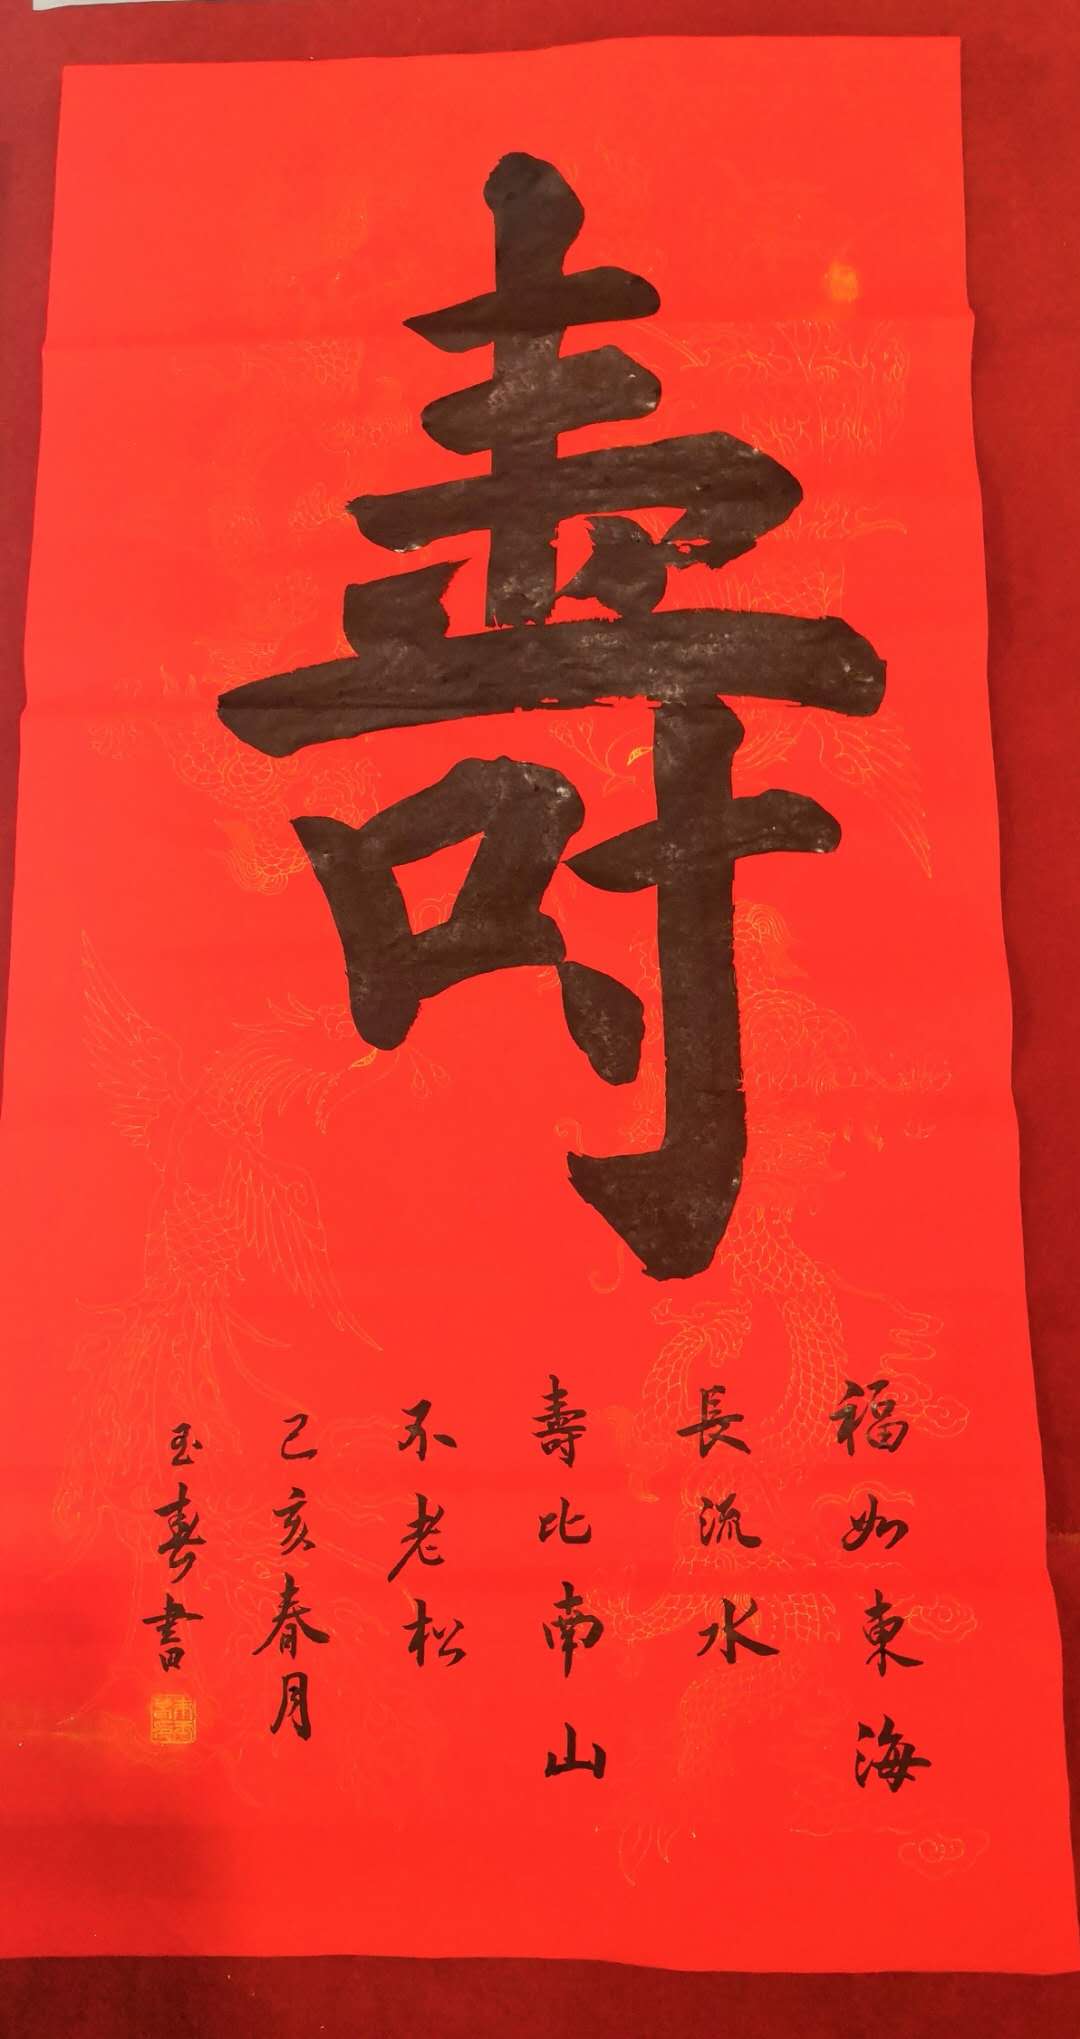 壽
福如東海
長流水
壽比南山
不老松
己亥春月
玉春書